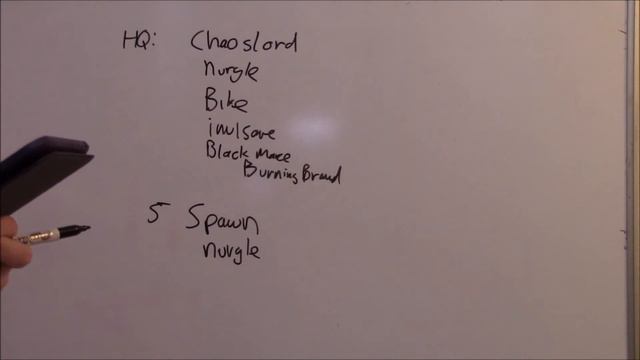 HQ: Chaoslord
nurgle
Bike
inulsave
Black Mace
Burning Brand
5 Spawn
nurgle